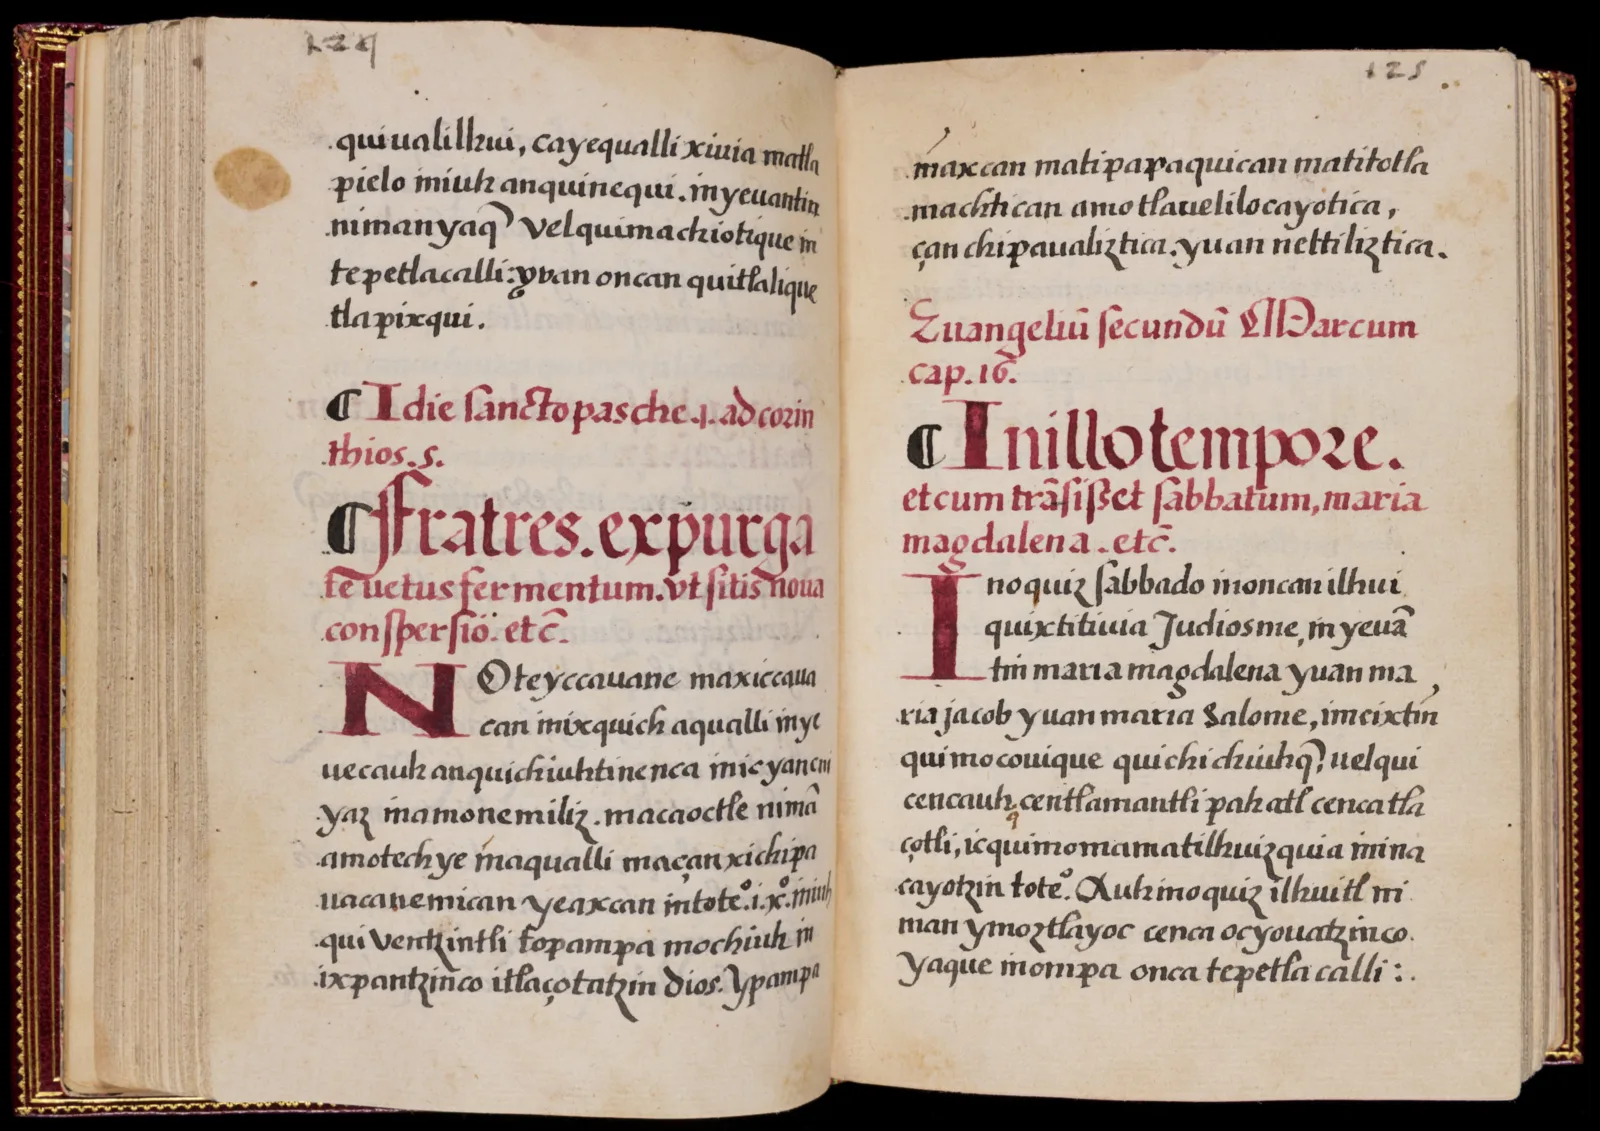 124
quiualilhui, cayequalli xiuia matla
pielo iniuh anquinequi. inyeuantin
nimanyaq̃ velquimachiotique in
tepetlacalli: yvan oncan quitlalique
tlapixqui.
¶ I die sancto pasche .1. ad corin
thios. 5.
¶ Fratres. expurga
te uetus fermentum. vt sitis noua
conspersiõ. etc̃.
NOteyccauane maxiccaua
can inixquich aqualli inye
uecauh anquichiuhtinenca inic yancui
yaz inamonemiliz. macaoctle nimã
amotechye inaqualli maçan xichipa
uacanemican yeaxcan intoteº. i. xº. iniuh
qui ventzintli topampa mochiuh in
ixpantzinco itlaçotatzin dios. Ypampa
125
maxcan matipapaquican matitotla
machtican amo tlauelilocayotica,
çan chipaualiztica. yuan neltiliztica.
Euangeliũ secundũ Marcum
cap. 16.
¶ In illo tempore.
et cum trãsisset sabbatum, maria
magdalena. etc̃.
Inoquiz sabbado inoncanilhui
quixtitiuia Judiosme, inyeuã
tin maria magdalena yuan ma
ria jacob yuan maria Salome, imeixtin
quimocouique quichichiuhq̃, uelqui
cencauhq̃ centlamantli pahatl cencatla
çotli, ic quimomamatilhuizquia inina
cayotzin toteº. Auh inoquiz ilhuitl ni
man ymoztlayoc cenca ocyouatzinco
yaque inompa onca tepetlacalli:.